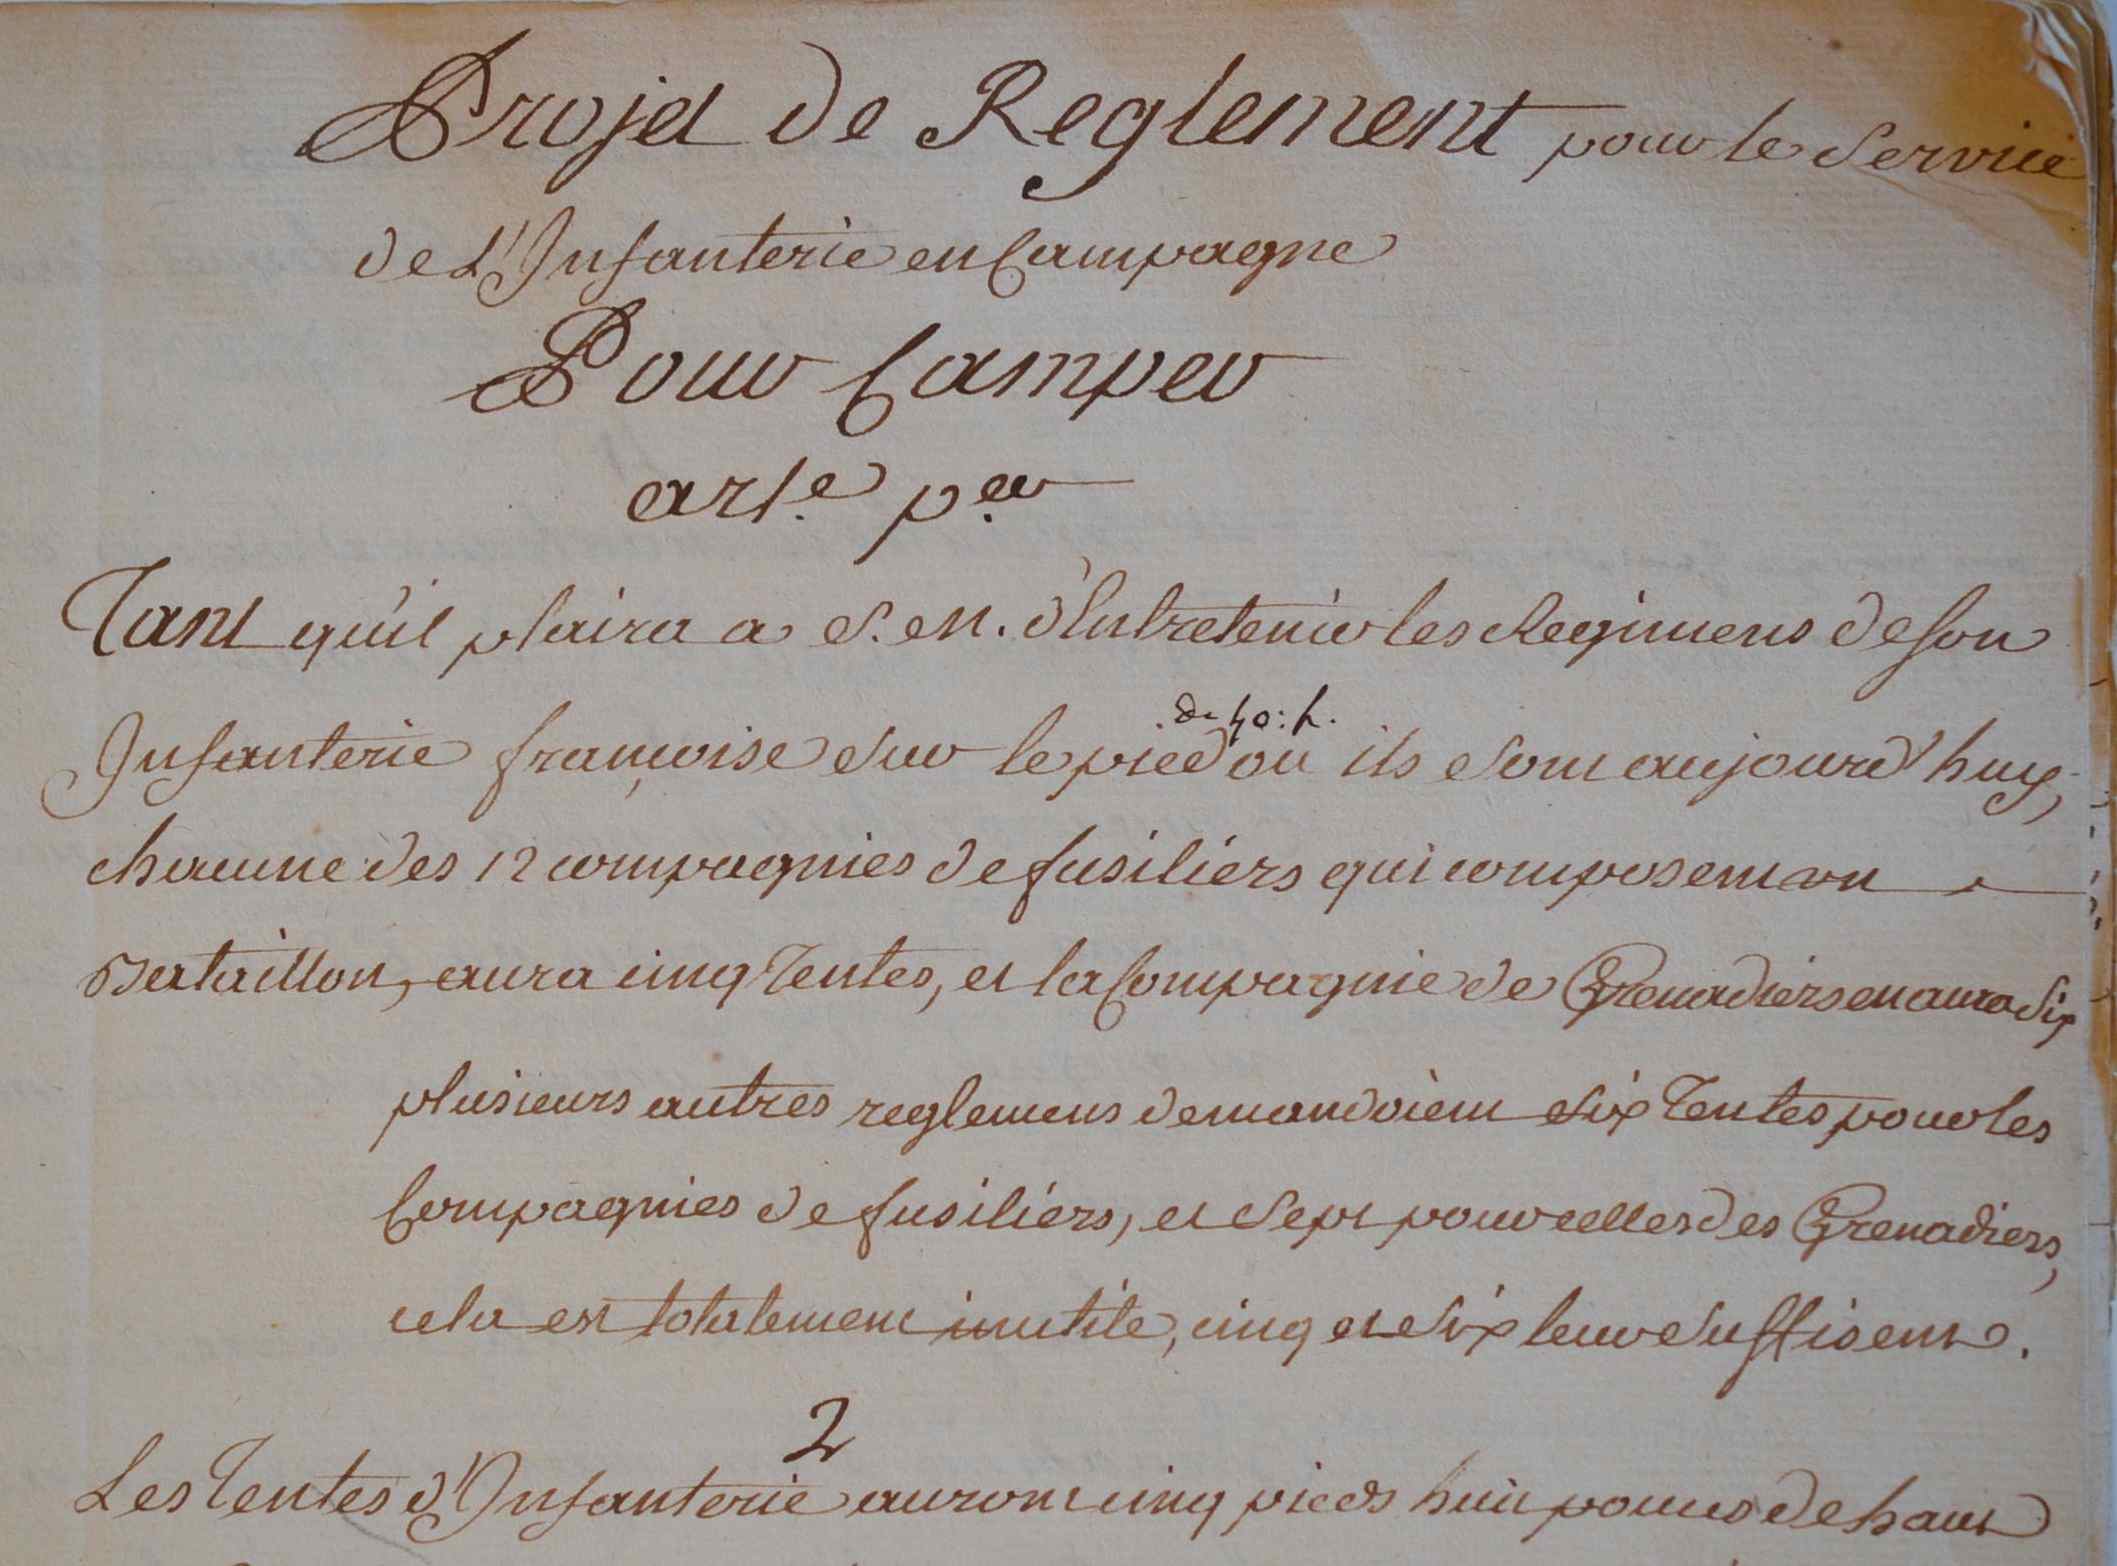 Projet de Reglement pour le Service
de L'Infanterie en Campagne
Pour Camper
art.e p.er
Tant qu'il plaira a S. M. d'Entretenir les Regimens de son
de 40: h.
Infanterie françoise sur le pied ou ils sont aujourd'huy,
chacune des 12 compagnies de fusiliers qui composent un
Bataillon, aura cinq Tentes, et la Compagnie de Grenadiers en aura Six
plusieurs autres reglemens demandoient Six Tentes pour les
Compagnies de fusiliers, et Sept pour celles des Grenadiers,
cela est totalement inutile, cinq et Six leur Suffisent.
2
Les Tentes d'Infanterie auront cinq pieds huit pouces de haut